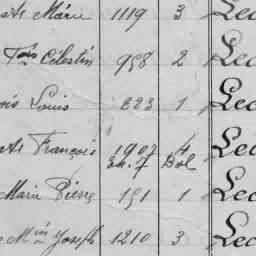 Marie 1119 3 Lec
Fois Célestin 958 2 Lec
Louis 823 1 Lec
François 1907 4 Lec
Ek. 7 Dol
Marie Pierre 191 1 Lec
Min Joseph 1210 3 Lec